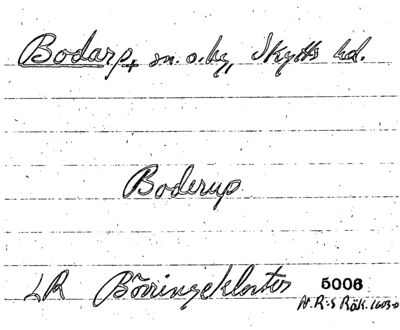 Bodarp, sn. o. by, Skytts hd.
Boderup.
LR Börringekloster 5006
H. R:s Räk. 1603-0